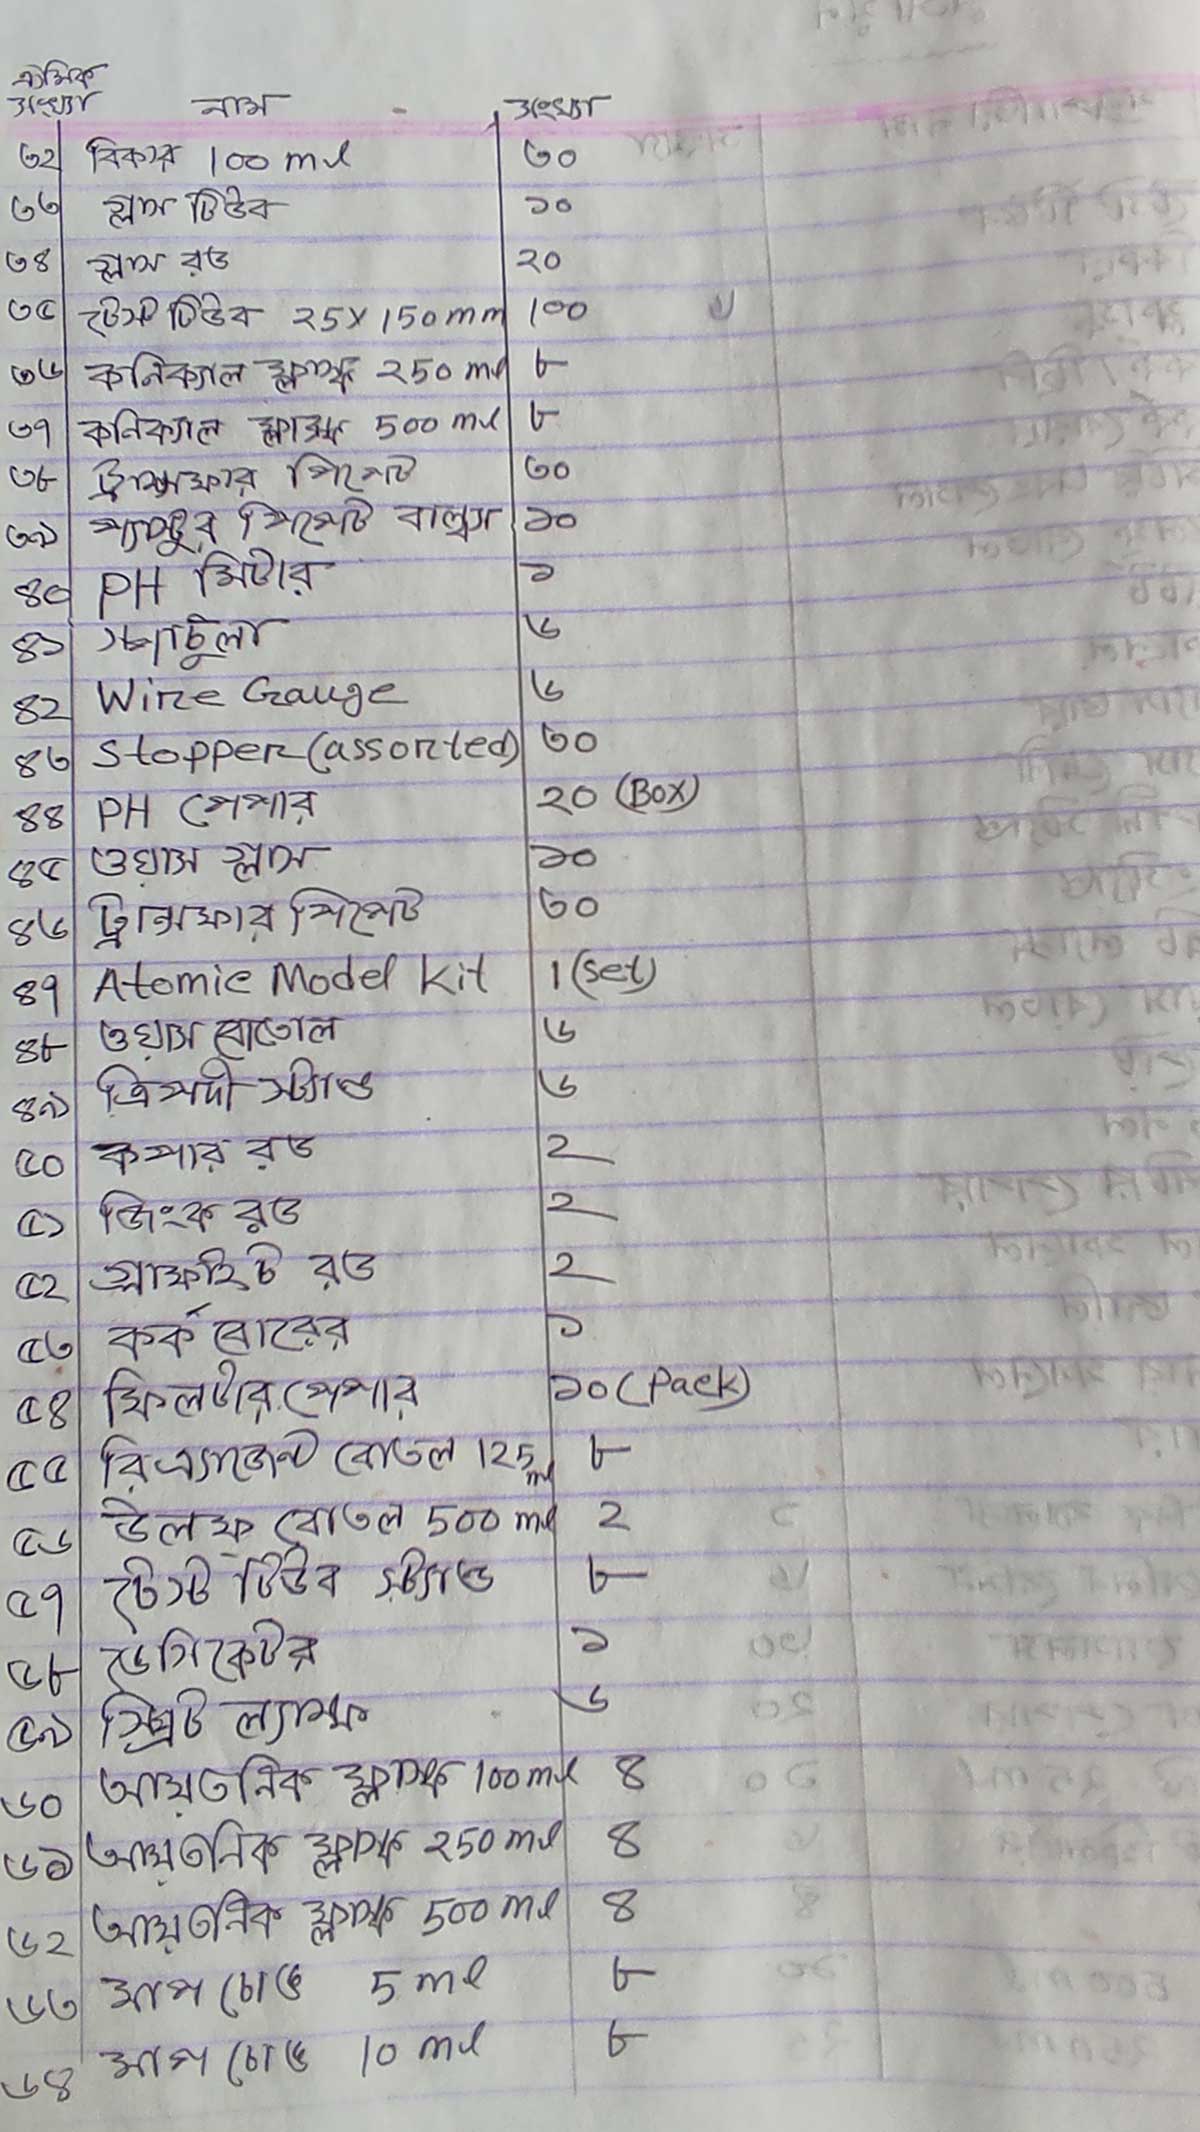 ক্রমিক
সংখ্যা নাম সংখ্যা
৩২ বিকার 100 ml ৩০
৩৩ গ্লাস টিউব ১০
৩৪ গ্লাস রড ২০
৩৫ টেস্ট টিউব 25X150mm 100
৩৬ কনিক্যাল ফ্লাস্ক 250 ml ৮
৩৭ কনিক্যাল ফ্লাস্ক 500 ml ৮
৩৮ ট্রান্সফার পিপেট ৩০
৩৯ প্যাস্টুর পিপেট বাল্বস ১০
৪০ PH মিটার ১
৪১ স্প্যাচুলা ৬
৪২ Wire Gauge ৬
৪৩ Stopper (assorted) ৩০
৪৪ PH পেপার ২০ (Box)
৪৫ ওয়াস গ্লাস ১০
৪৬ ট্রান্সফার পিপেট ৩০
৪৭ Atomic Model Kit 1 (set)
৪৮ ওয়াস বোতোল ৬
৪৯ ত্রিপদী স্ট্যান্ড ৬
৫০ কপার রড ২
৫১ জিংক রড ২
৫২ গ্রাফাইট রড ২
৫৩ কর্ক বোরের ১
৫৪ ফিলটার পেপার ১০ (Pack)
৫৫ রিএ্যাজেন্ট বোতল 125 ml ৮
৫৬ উলফ্ বোতল 500 ml 2
৫৭ টেস্ট টিউব স্ট্যান্ড ৮
৫৮ ডেসিকেটর ১
৫৯ স্পিরিট ল্যাম্প ৬
৬০ আয়তনিক ফ্লাস্ক 100 ml ৪
৬১ আয়তনিক ফ্লাস্ক 250 ml ৪
৬২ আয়তনিক ফ্লাস্ক 500 ml ৪
৬৩ মাপ চোঙ 5 ml ৮
৬৪ মাপ চোঙ 10 ml ৮